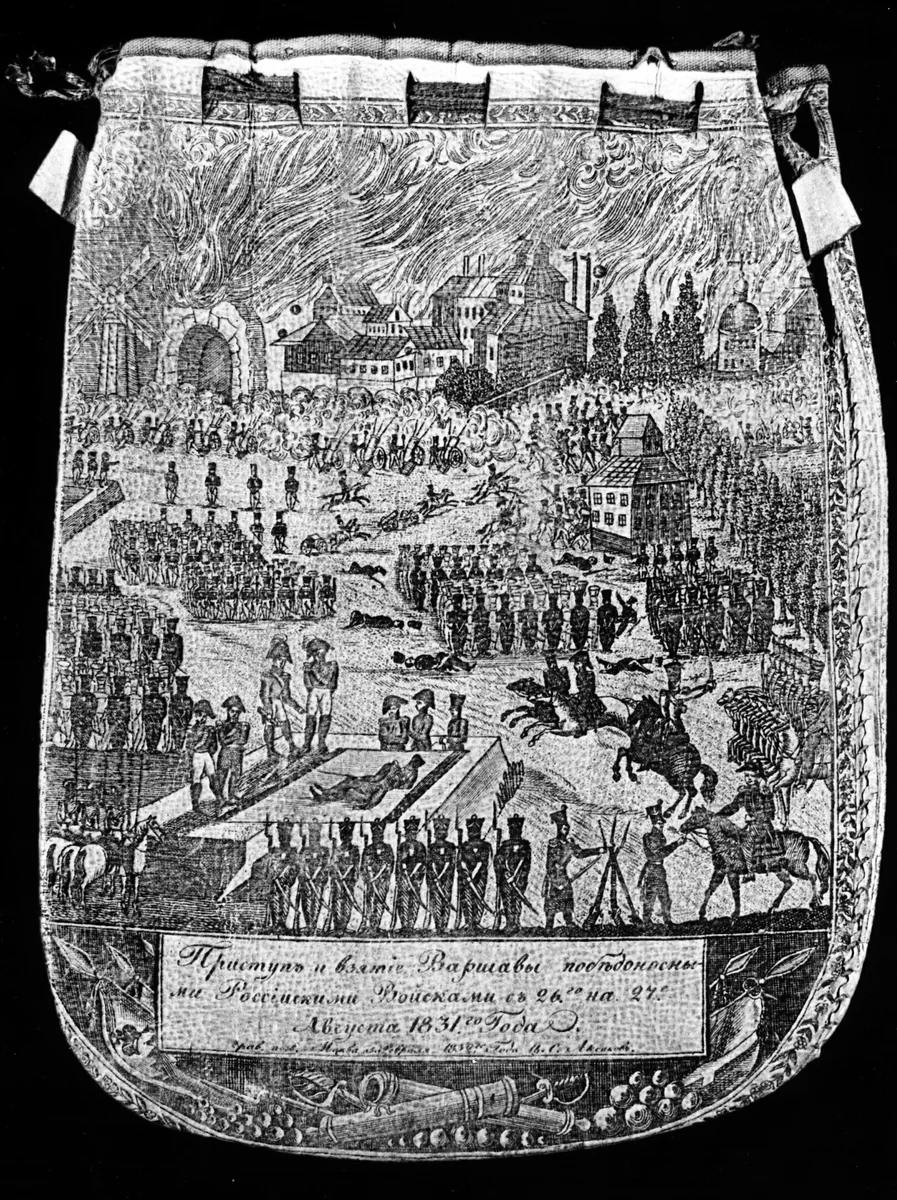 Приступъ и взятіе Варшавы побѣдоносны-
ми Россійскими Войсками съ 26.го на 27.е
Августа 1831.го Года
Года